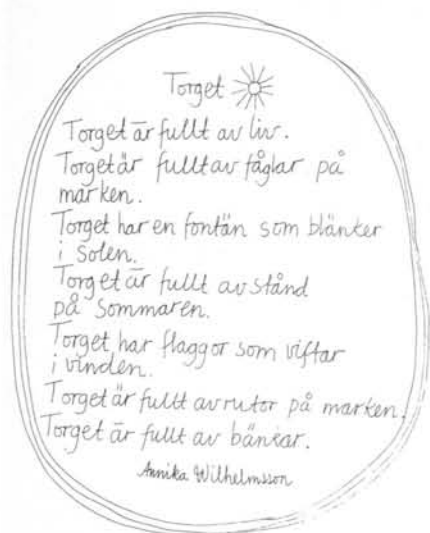 Torget
Torget är fullt av liv.
Torget är fullt av fåglar på
marken.
Torget har en fontän som blänker
i solen.
Torget är fullt av stånd
på sommaren.
Torget har flaggor som viftar
i vinden.
Torget är fullt av rutor på marken.
Torget är fullt av bänkar.
Annika Wilhelmsson